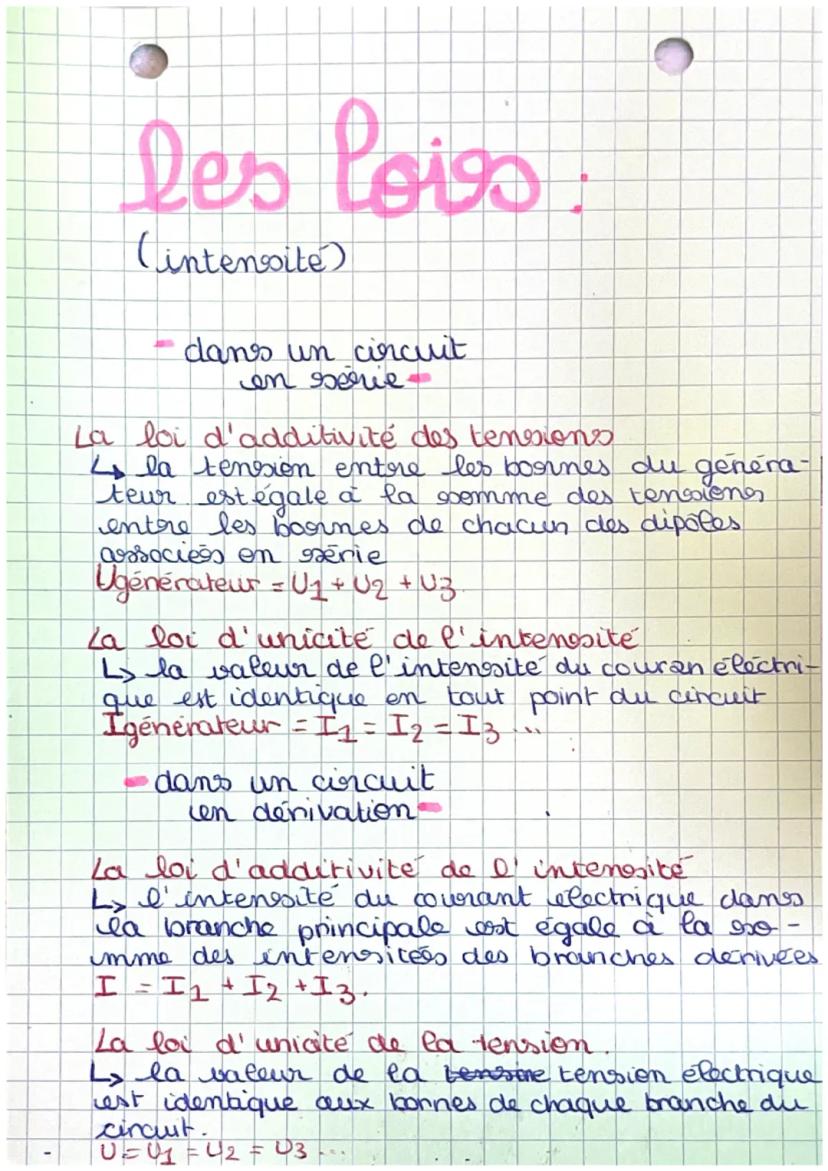 les lois :
(intensité)
- dans un circuit
en série -
La loi d'additivité des tensions
↳ la tension entre les bornes du généra-
teur est égale à la somme des tensions
entre les bornes de chacun des dipôles
associés en série
Ugénérateur = U1 + U2 + U3.
La loi d'unicité de l'intensité
↳ la valeur de l'intensité du couran électri-
que est identique en tout point du circuit
Igénérateur = I1 = I2 = I3 ...
- dans un circuit
en dérivation -
La loi d'additivité de l'intensité
↳ l'intensité du courant électrique dans
la branche principale est égale à la so-
mme des intensitées des branches dérivées
I = I1 + I2 + I3.
La loi d'unicité de la tension.
↳ la valeur de la tensire tension électrique
est identique aux bornes de chaque branche du
circuit.
- U = U1 = U2 = U3 ...